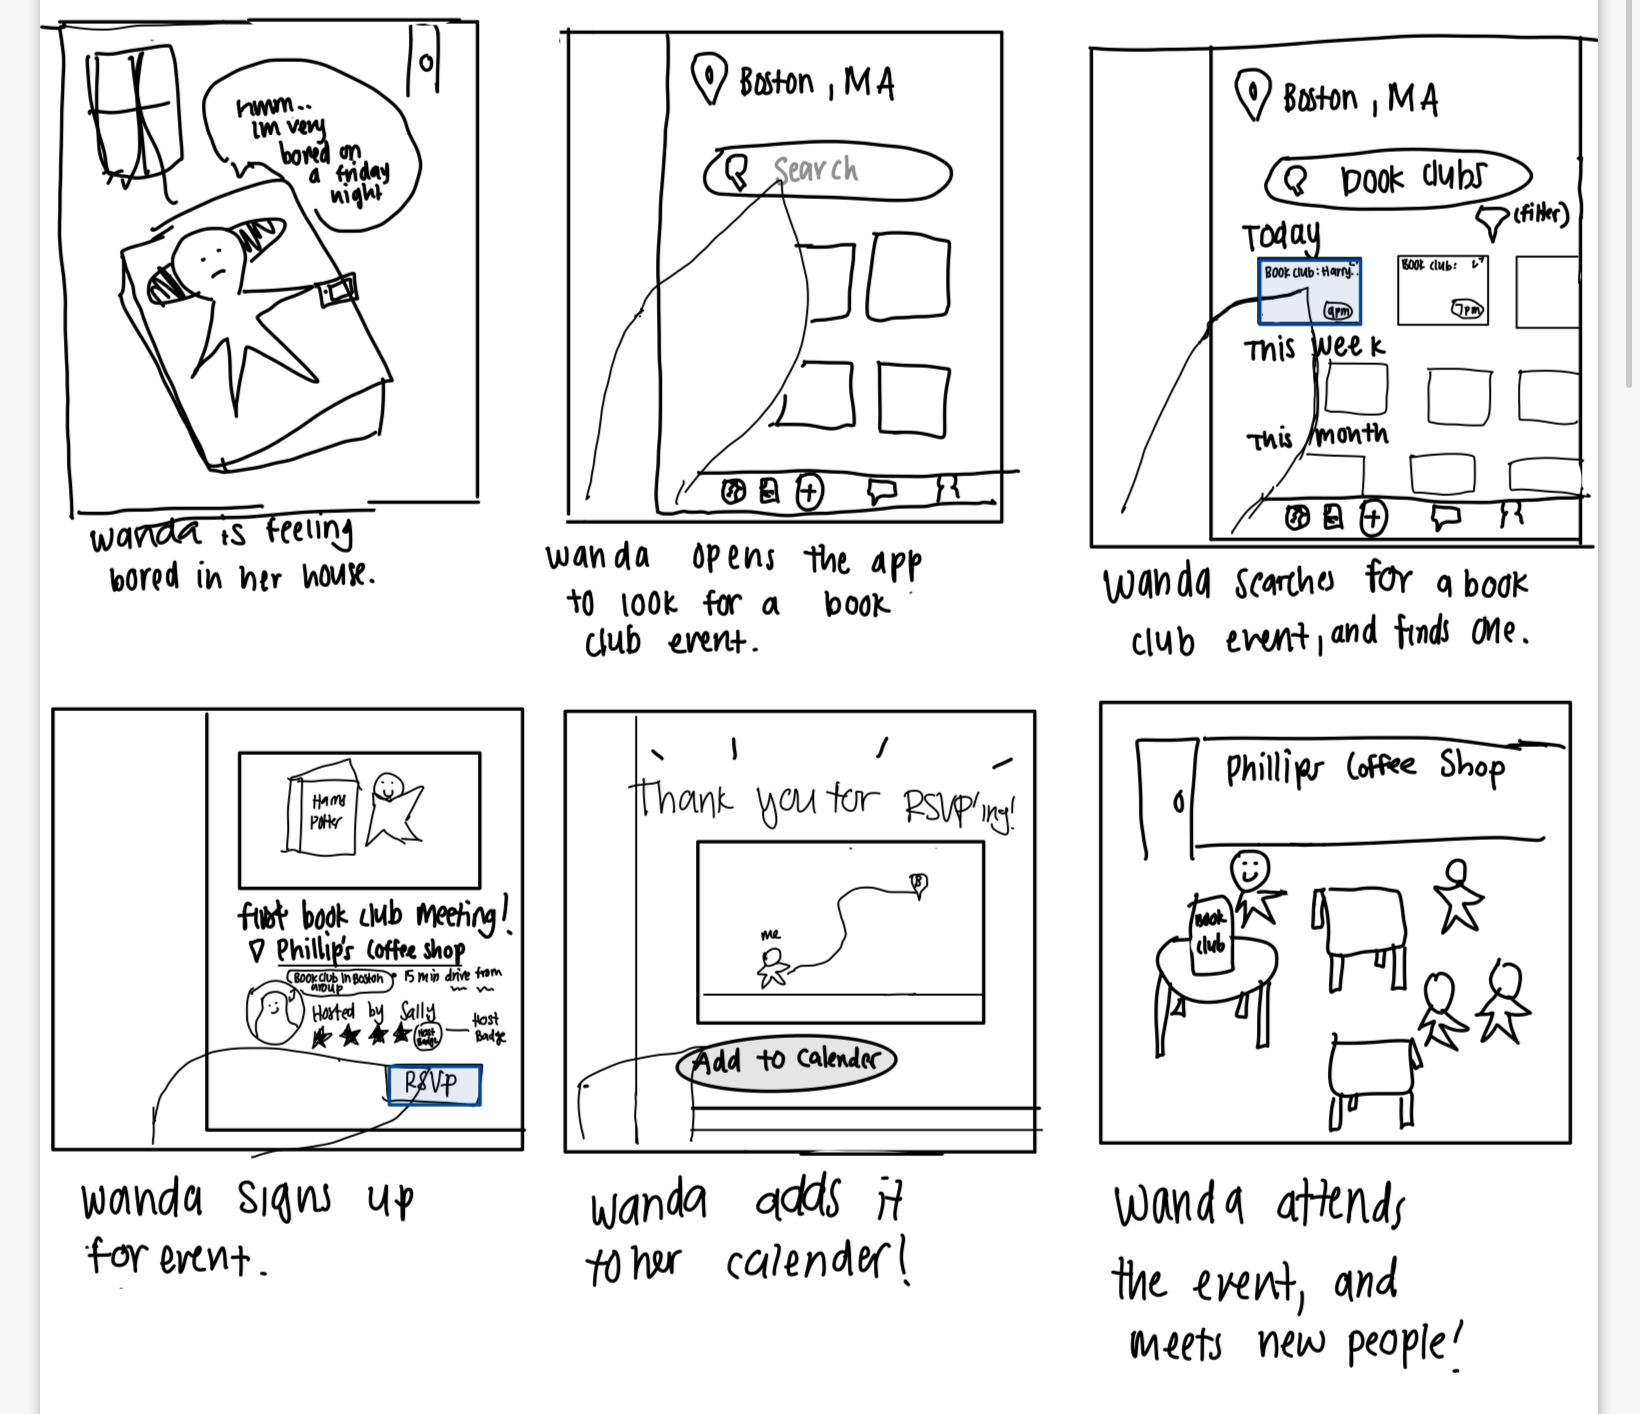 hmm..
im very
bored on
a friday
night
wanda is feeling
bored in her house.
Boston, MA
Search
wanda opens the app
to look for a book
club event.
Boston, MA
book clubs
(filter)
Today
Book club: Harry..
9pm
Book club:
7pm
This week
This month
Wanda searches for a book
club event, and finds one.
Harry
Potter
first book club meeting!
Phillip's coffee shop
Book club in Boston
group
15 min drive from
Hosted by Sally
Host
Badge
Host
Badge
RSVP
Wanda signs up
for event.
Thank you for RSVP'ing!
B
me
Add to calender
Wanda adds it
to her calender!
Phillips Coffee Shop
Book
club
Wanda attends
the event, and
meets new people!